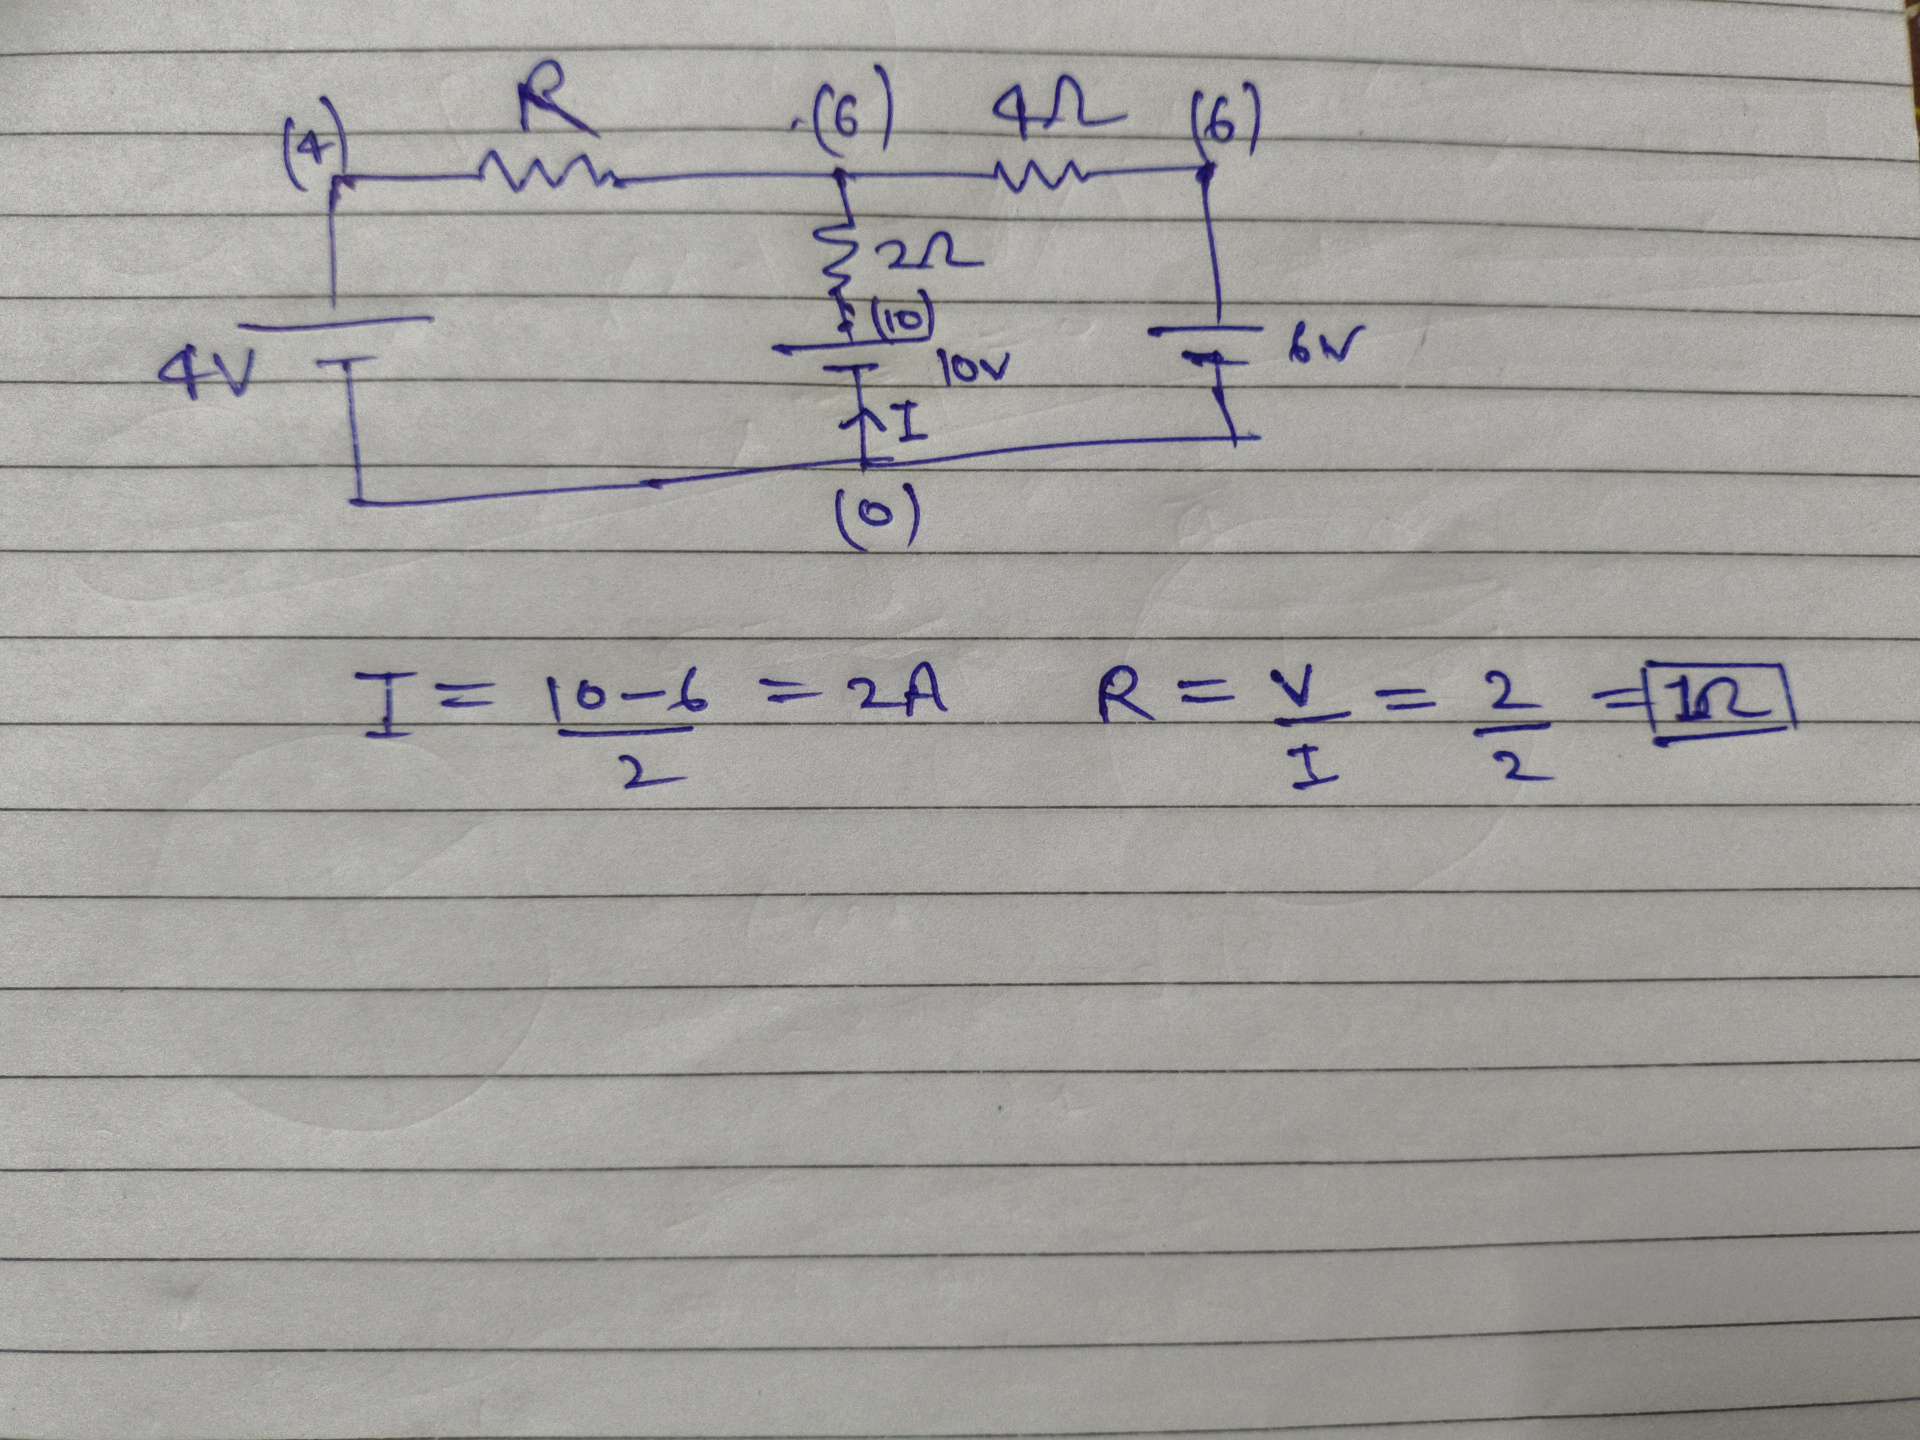 R
(4) (6) 4Ω (6)
2Ω
(10)
4V 10V 6V
I
(0)
I = 10-6/2 = 2A R = V/I = 2/2 = 1Ω